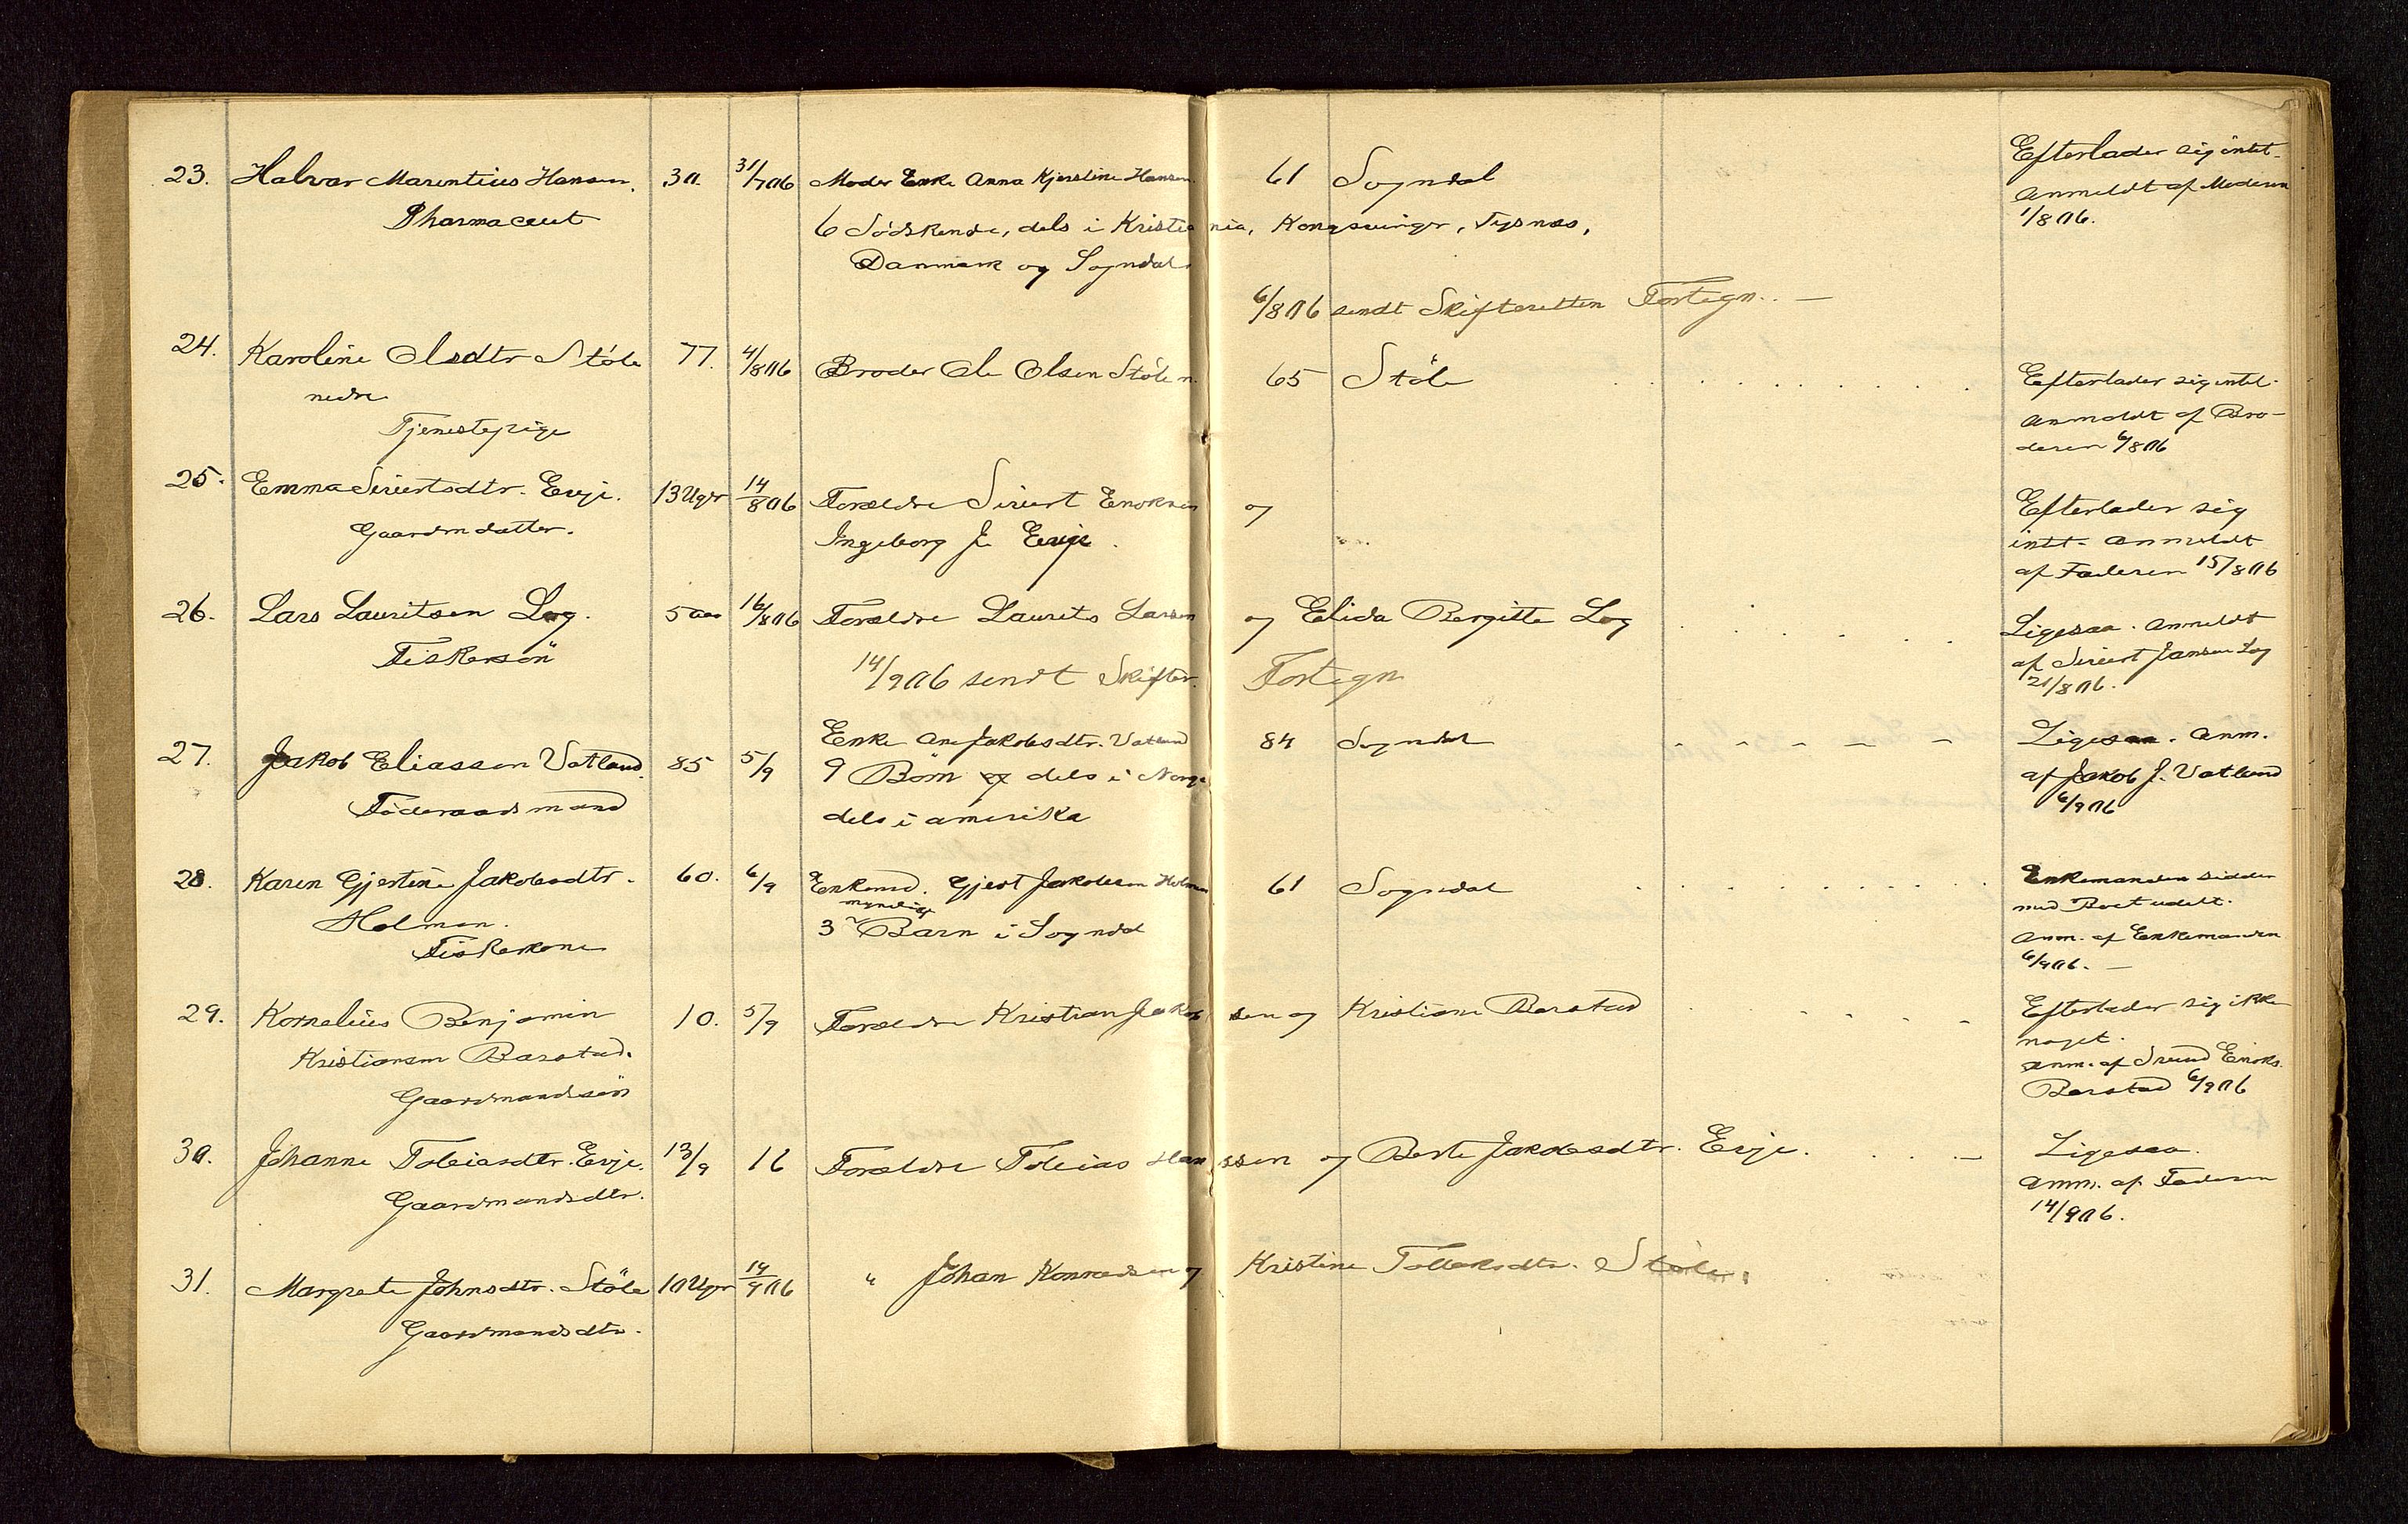 23. Halvar Marentius Hansen. 30. 31/7 06 Moder Enke Anna Kjerstine Hansen. 61 Sogndal Efterlader sig intet.
Pharmaceut 6 Södskende, dels i Kristiania, Kongsvinger, Tysnæs, Anmeldt af Moderen
Danmark og Sogndal 1/8 06.
6/8 06 sendt Skifteretten Fortegn. —
24. Karoline Olsdtr Stöle 77. 4/8 06 Broder Ole Olsen Stöle n. 65 Stöle Efterlader sig intet.
nedre Anmeldt af Bro-
Tjenestepige deren 6/8 06
25. Emma Sivertsdtr. Evje. 13 Uger 14/8 06 Forældre Sivert Enoksen og Efterlader sig
Gaardmdatter. Ingeborg J. Evje. intet. Anmeldt
af Faderen 15/8 06
26. Lars Lauritsen Log. 5 aar 16/8 06 Forældre Laurits Larsen og Elida Bergitte Log Ligesaa. Anmeldt
Fiskersön 14/9 06 sendt Skifter. Fortegn af Sivert Jansen Log
21/8 06.
27. Jakob Eliassen Vatland. 85 5/9 Enke Ane Jakobsdtr. Vatland 84 Sogndal Ligesaa. Anm.
Föderaadsmand 9 Börn dels i Norge af Jakob J. Vatland
dels i Amerika 6/9 06
28. Karen Gjertine Jakobsdtr. 60. 6/9 Enkemd. Gjert Jakobsen Holmen 61 Sogndal Enkemanden sidder
Holmen. myndige med Boet udelt.
Fiskerkone 3 Barn i Sogndal Anm. af Enkemanden
6/9 06. —
29. Kornelius Benjamin 10. 5/9 Forældre Kristian Jakobsen og Kristiane Barstad Efterlader sig ikke
Kristiansen Barstad. noget.
Gaardmandssön Anm. af Svend Enoks.
Barstad 6/9 06
30. Johanne Tobiasdtr. Evje. 13/9 16 Forældre Tobias Hanssen og Berte Jakobsdtr. Evje. Ligesaa.
Gaardmandsdtr. Anm. af Faderen
14/9 06.
31. Margrete Johnsdtr. Stöle 10 Uger 14/9 06 " Johan Konradsen og Kristine Tolleksdtr. Stöle.
Gaardmandsdtr.